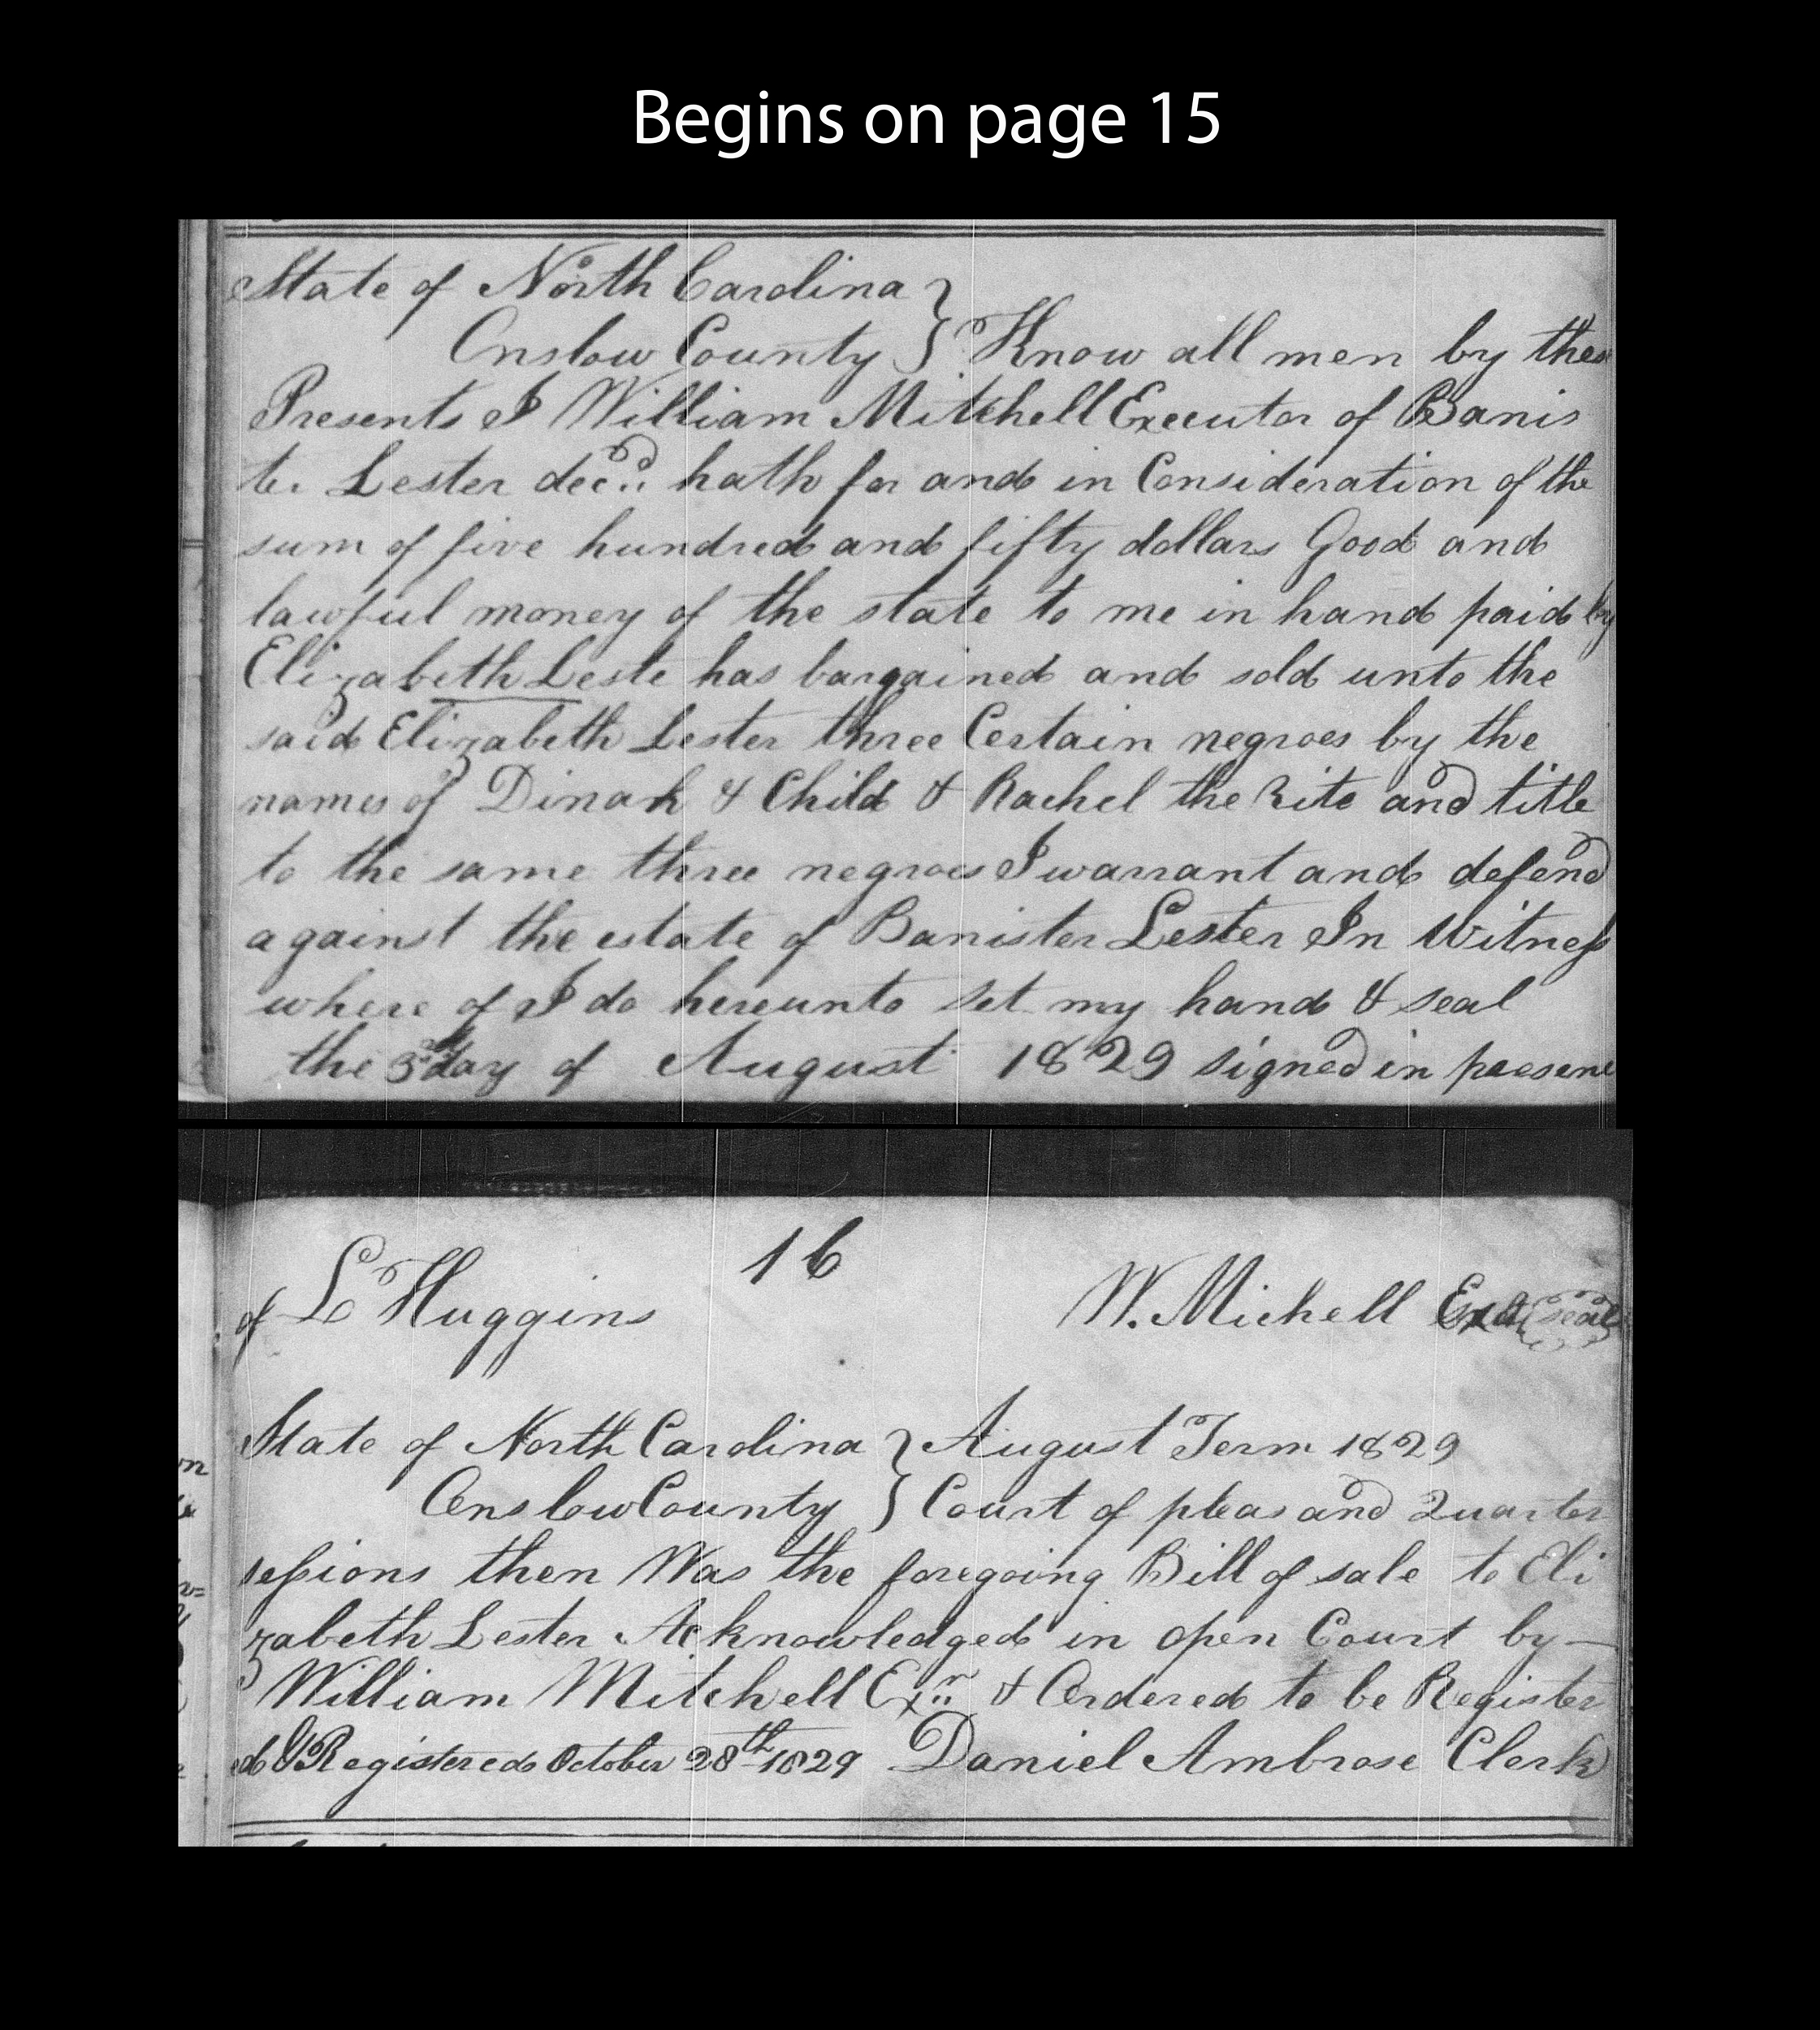 Begins on page 15
State of North Carolina }
Onslow County } Know all men by these
Presents I William Mitchell Executor of Banis
ter Lester decd. hath for and in Consideration of the
sum of five hundred and fifty dollars Good and
lawful money of the state to me in hand paid by
Elizabeth Leste has bargained and sold unto the
said Elizabeth Lester three Certain negroes by the
names of Dinah & Child & Rachel the Rite and title
to the same three negroes I warrant and defend
against the estate of Banister Lester In Witness
where of I do hereunto set my hand & seal
the 3rd day of August 1829 signed in presenc
16
of L Huggins W. Michell Exr seal
State of North Carolina } August Term 1829
Onslow County } Court of pleas and Quarter
sessions then Was the foregoing Bill of sale to Eli
zabeth Lester Acknowledged in open Court by
William Mitchell Exr. & Ordered to be Register
ed Registered October 28th 1829 Daniel Ambrose Clerk